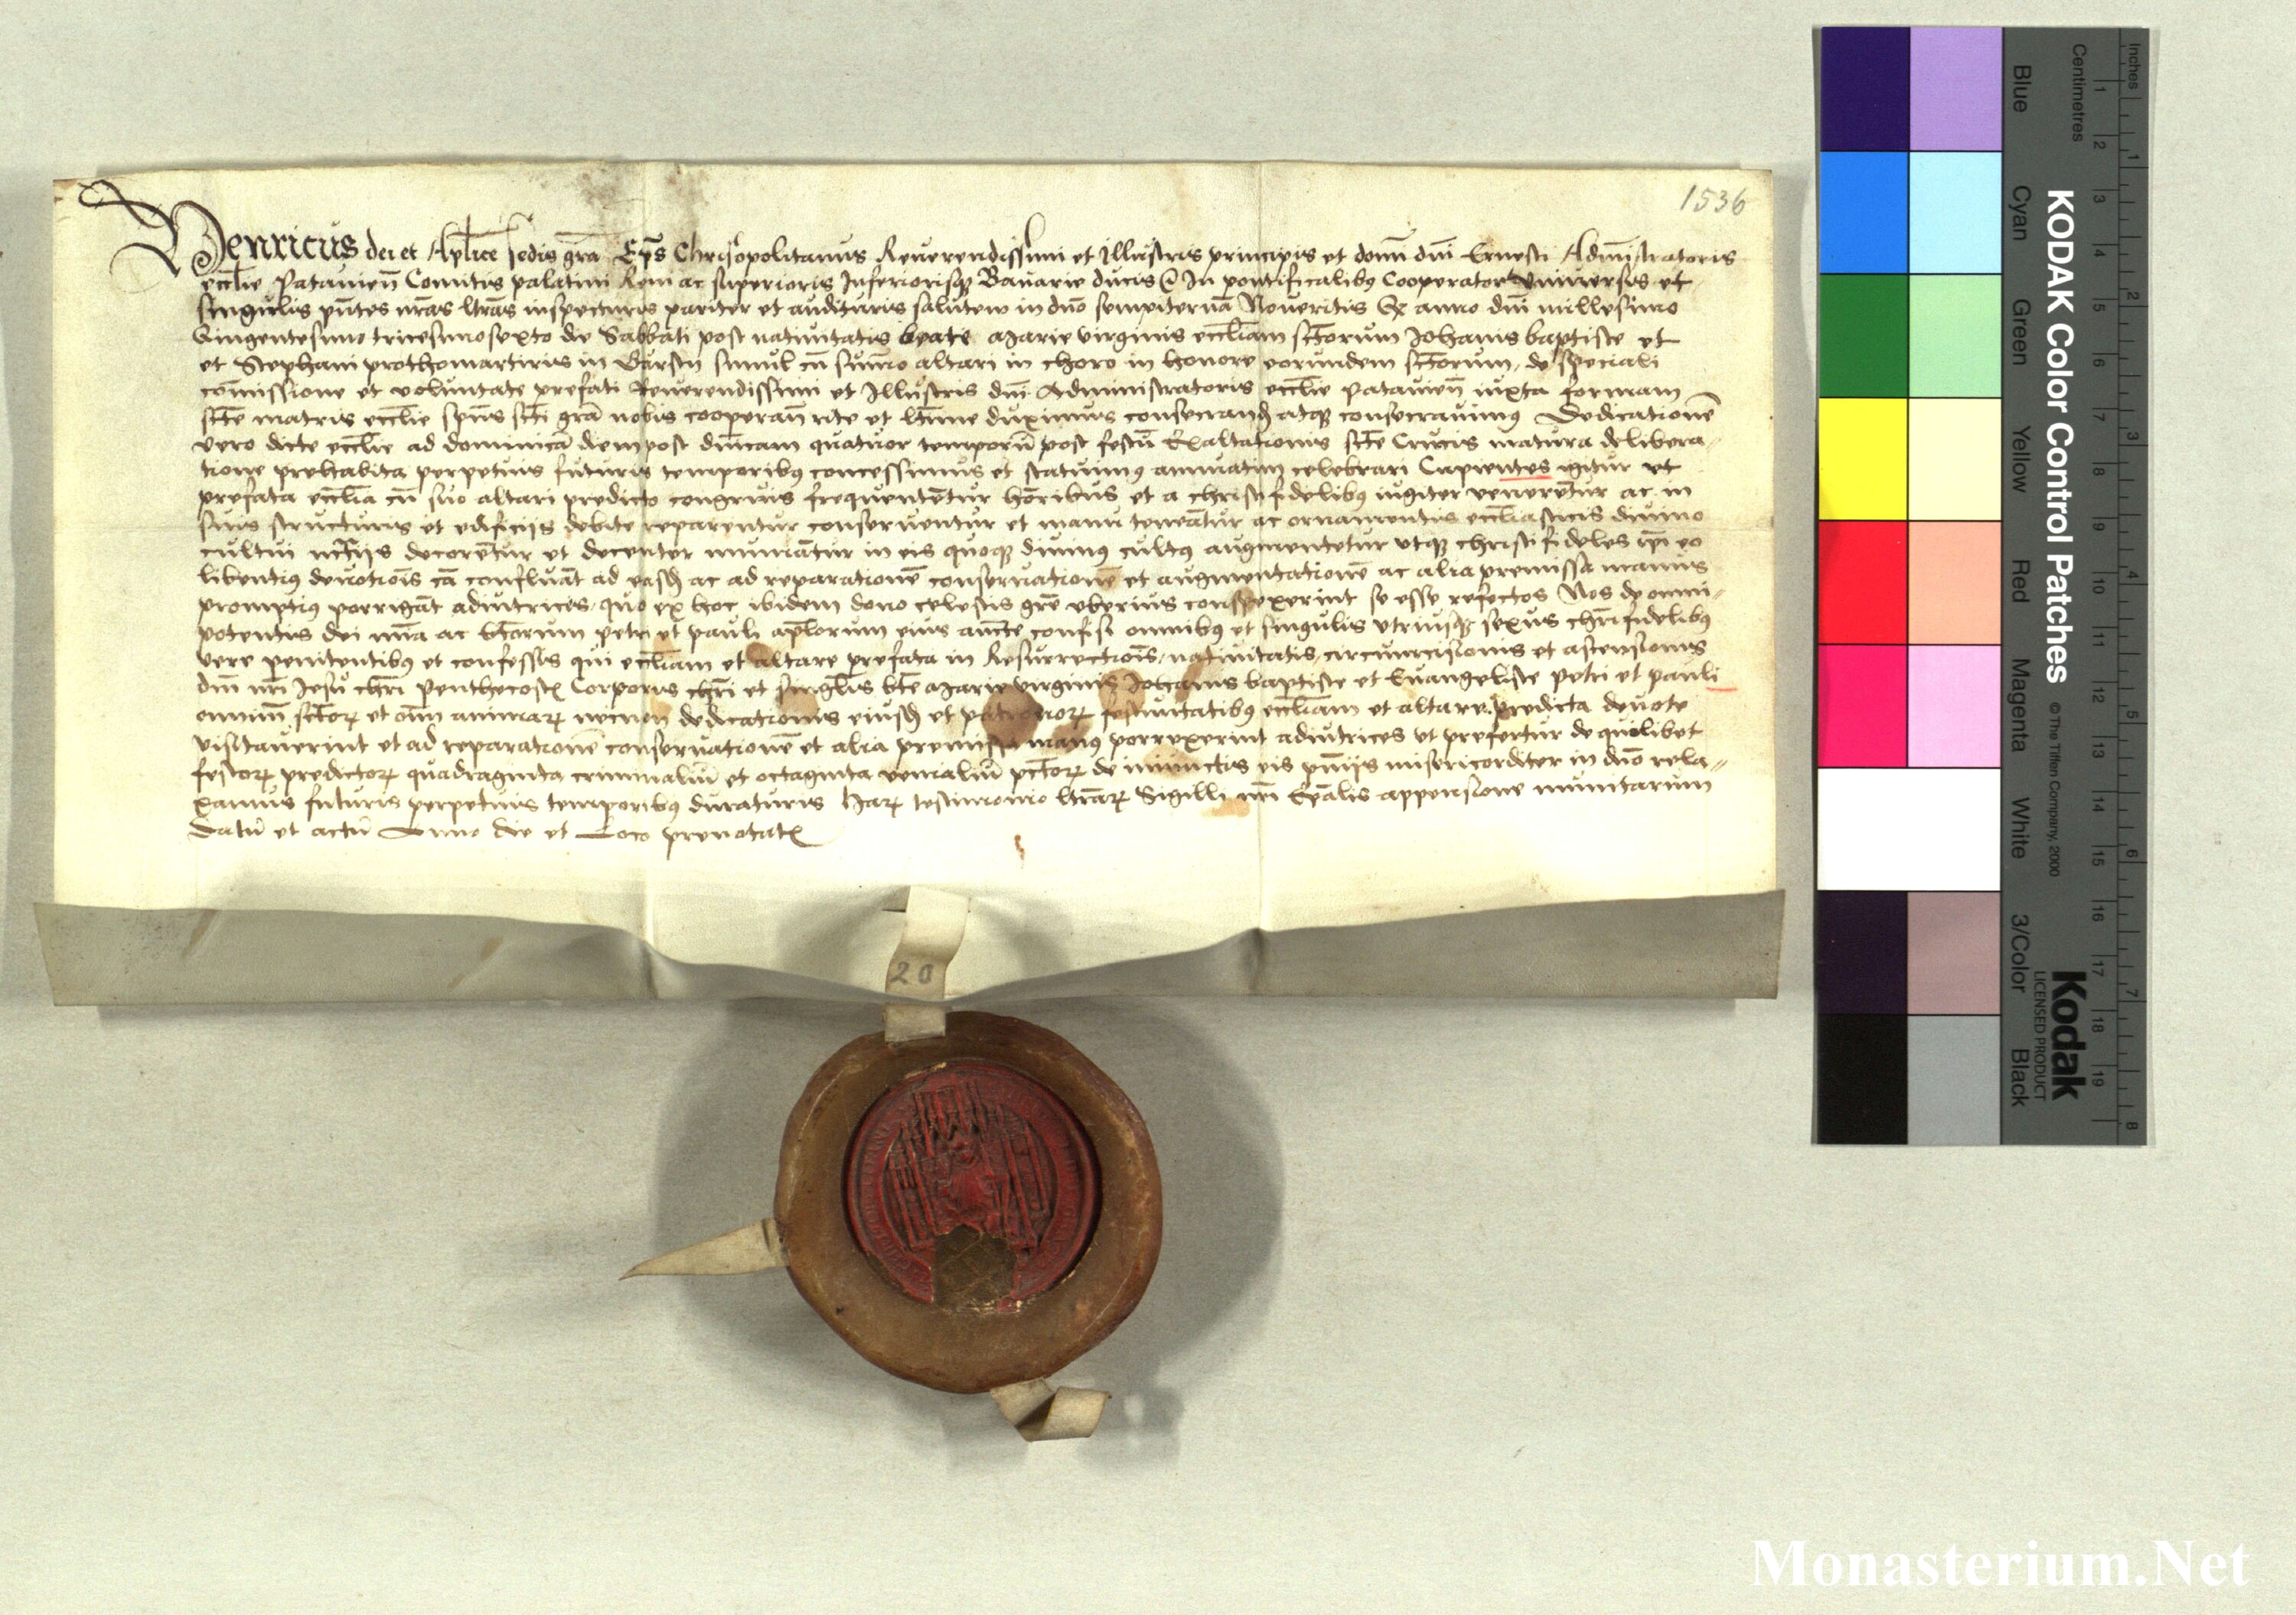 1536
Henricus dei et Aplice sedis gra Eps Chrisopolitanus Reuerendissimi et Illustris principis et domi dni Ernesti Administratoris
ecclie Patauien Comitis palatini Reni ac superioris Inferiorisq Bauarie ducis In pontificalibus Cooperator Vniuersis et
singulis pntes nras lras inspecturis pariter et audituris salutem in dno sempiternā Noueritis anno dni millesimo
Qingentesimo tricesimosexto die Sabbati post natiuitatis beate Marie virginis eccliam sctorum Johanis baptiste et
et Stephani prothomartiris in simul cū sūmo altari in choro in honore eorundem sctorum, de speciali
cōmissione et voluntate prefati Reuerendissimi et Illustris dni Administratoris ecclie Patauien iuxta formam
scte matris ecclie spūs scti grā nobis cooperan rite et ltime duximus consecrand atq consecrauimus Dedicationē
vero dicte ecclie ad dominicā diem post dnicam quatuor temporū post festū Exaltationis scte Crucis matura delibera-
tione prehabita perpetuis futuris temporibus concessimus et statuimus annuatim celebrari Cupientes igitur vt
prefata ecclia cū suo altari predicto congruis frequentētur honoribus et a christifidelibus iugiter venerētur ac in
suis structuris et edificijs debite reparentur conseruentur et manu teneātur ac ornamentis eccliasticis diuino
cultui decorētur et decenter muniātur in eis quoq diuinus cultus augmentetur vtq christifideles ipi eo
libentius deuotiōis cā confluāt ad easd ac ad reparationē conseruationē et augmentationē ac alia premissa manus
promptius porrigāt adiutrices, quo ex hoc ibidem dono celestis grē vberius conspexerint se esse refectos Nos de omni-
potentis dei mīa ac btorum petri et pauli aplorum eius aucte confisi omnibus et singulis vtriusq sexus chrifidelibus
vere penitentibus et confessis qui eccliam et altare prefata in Resurrectiōis, natiuitatis, circumcisionis et ascensionis
dni nri Jesu chri Penthecostes Corporis chri et singlis bte Marie virginis Johanis baptiste et Euangeliste petri et pauli
omnium sctor et oīm animar necnon dedicationis eiusd et patronor festiuitatibus eccliam et altare predicta deuote
visitauerint et ad reparationē conseruationē et alia premissa manus porrexerint adiutrices vt prefertur de quolibet
festor predictor quadraginta criminaliū et octaginta venialiū pctor de iniunctis eis pnijs misericorditer in dno rela-
xamus futuris perpetuis temporibus duraturis Har testimonio lrar Sigilli nri Epalis appensione munitarum
Datū et actū Anno die et Loco prenotatis
20
Inches
Centimetres
KODAK Color Control Patches
© The Tiffen Company, 2000
Kodak
LICENSED PRODUCT
Blue Cyan Green Yellow Red Magenta White 3/Color Black
1 2 3 4 5 6 7 8 9 10 11 12 13 14 15 16 17 18 19
1 2 3 4 5 6 7 8
Monasterium.Net